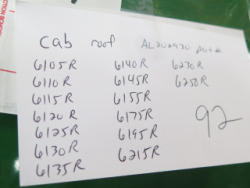 cab roof
6105R 6140R 6230R
6110R 6145R 6250R
6115R 6155R
6120R 6175R
6125R 6195R
6130R 6215R
6135R
92